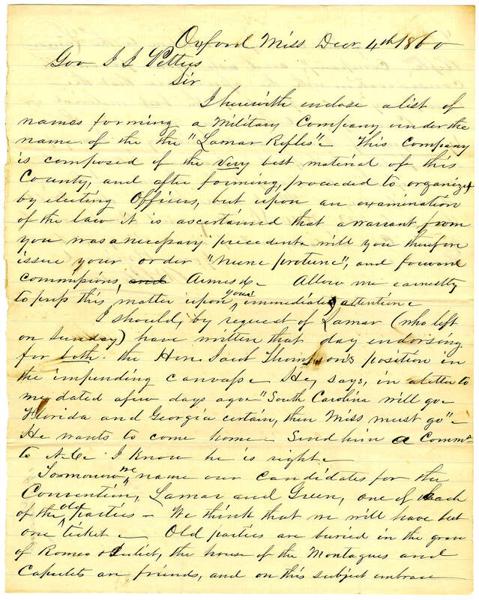 Oxford Miss Decr 4th 1860
Gov J J Pettus
Sir
I herewith enclose a list of
names forming a Military Company under the
name of the the "Lamar Rifles" - This Company
is composed of the very best material of this
County, and after forming, proceeded to organize
by electing Officers, but upon an examination
of the law it is ascertained that a warrant from
you was a necessary precedent. will you therefore
issue your order "nunc protunc", and forward
commissions, and Arms &c - Allow me earnestly
to press this matter upon your immediate attention -
I should, by request of Lamar (who left
on Sunday) have written that day endorsing
for both. the Hon. Jacob Thompson's position in
the impending canvass - He, says, in a letter to
me, dated a few days ago - "South Carolina will go -
Florida and Georgia certain, then Miss must go" -
He wants to come home - Send him a Commn
to N.C. I know he is right -
Tomorrow we name our candidates for the
Convention, Lamar and Green, one of each
of the old parties - We think that we will have but
one ticket - Old parties are buried in the grave
of Romeo & Juliet, the house of the Montagues and
Capulets are friends, and on this subject embrace